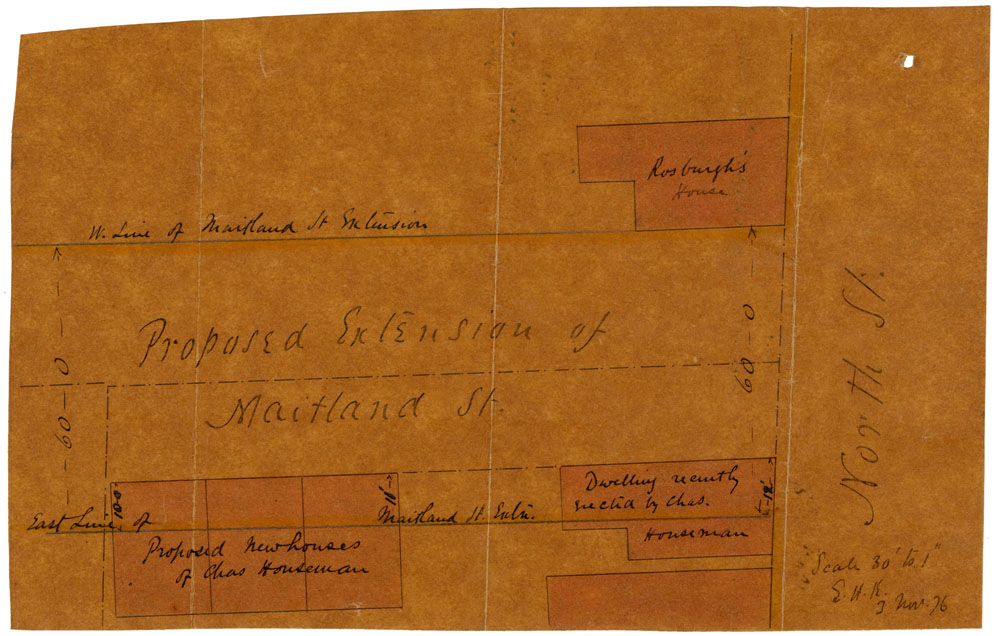 Rosburgh's
House
W. Line of Maitland St Extension
60-0
60-0
Proposed Extension of
Maitland St.
North St.
Dwelling recently
erected by Chas.
Houseman
12'
11'
East Line of
Maitland St Extn.
Proposed New houses
of Chas Houseman
Scale 30' to 1"
E. H. K.
3 Nov. 76